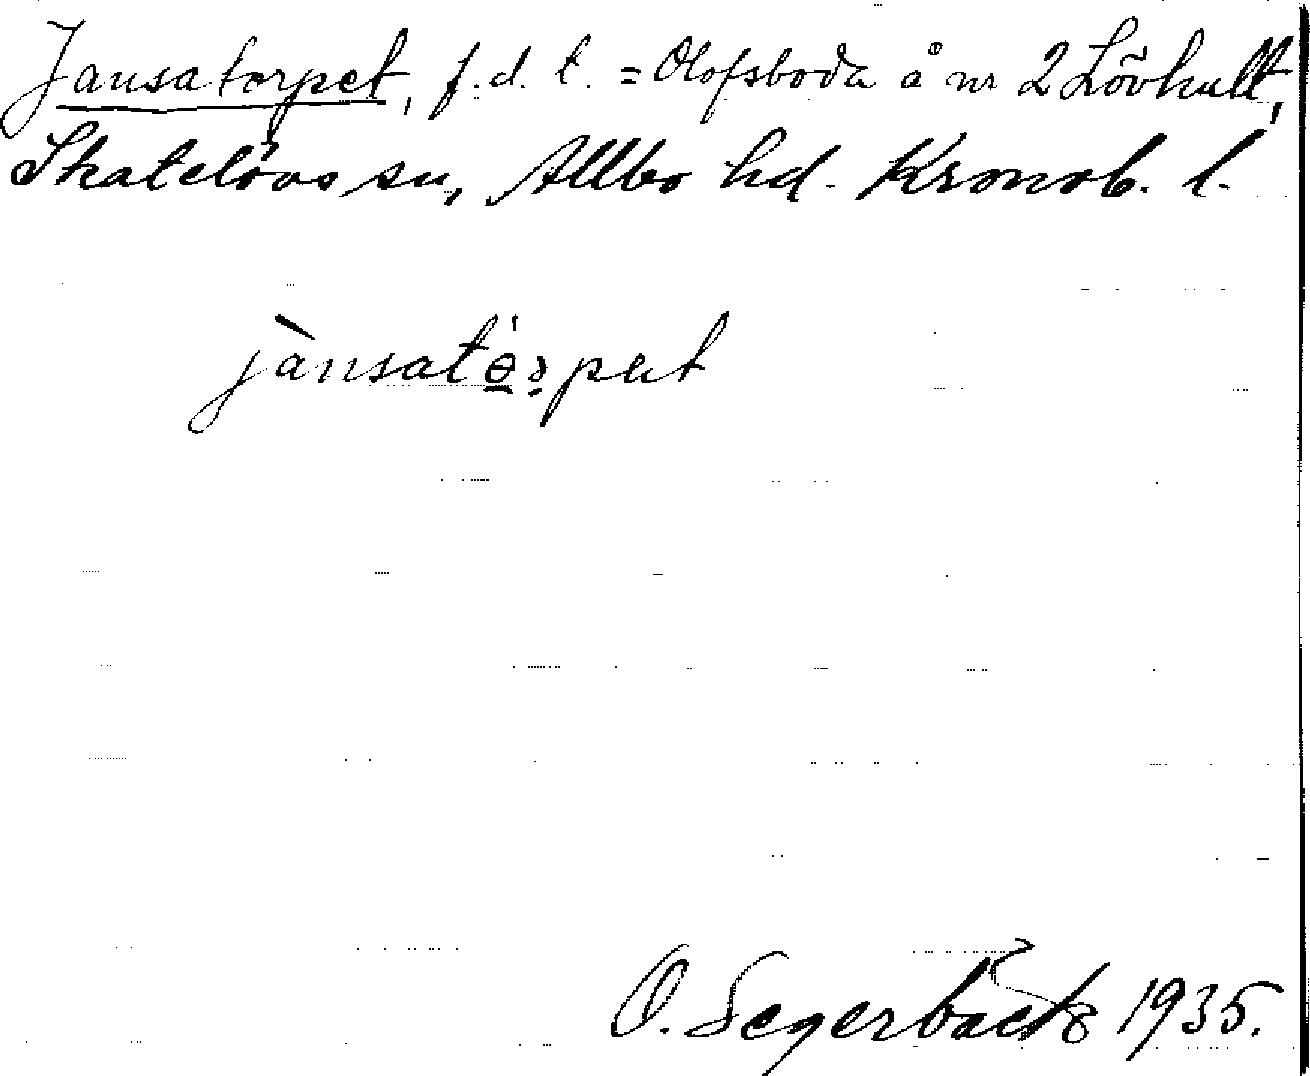 Jansatorpet, f.d. t. = Olofsboda å nr 2 Lövhult,
Skatelövs sn, Allbo hd. Kronob. l.
jànsatɵ̲rpet
O. Segerbäck 1935.